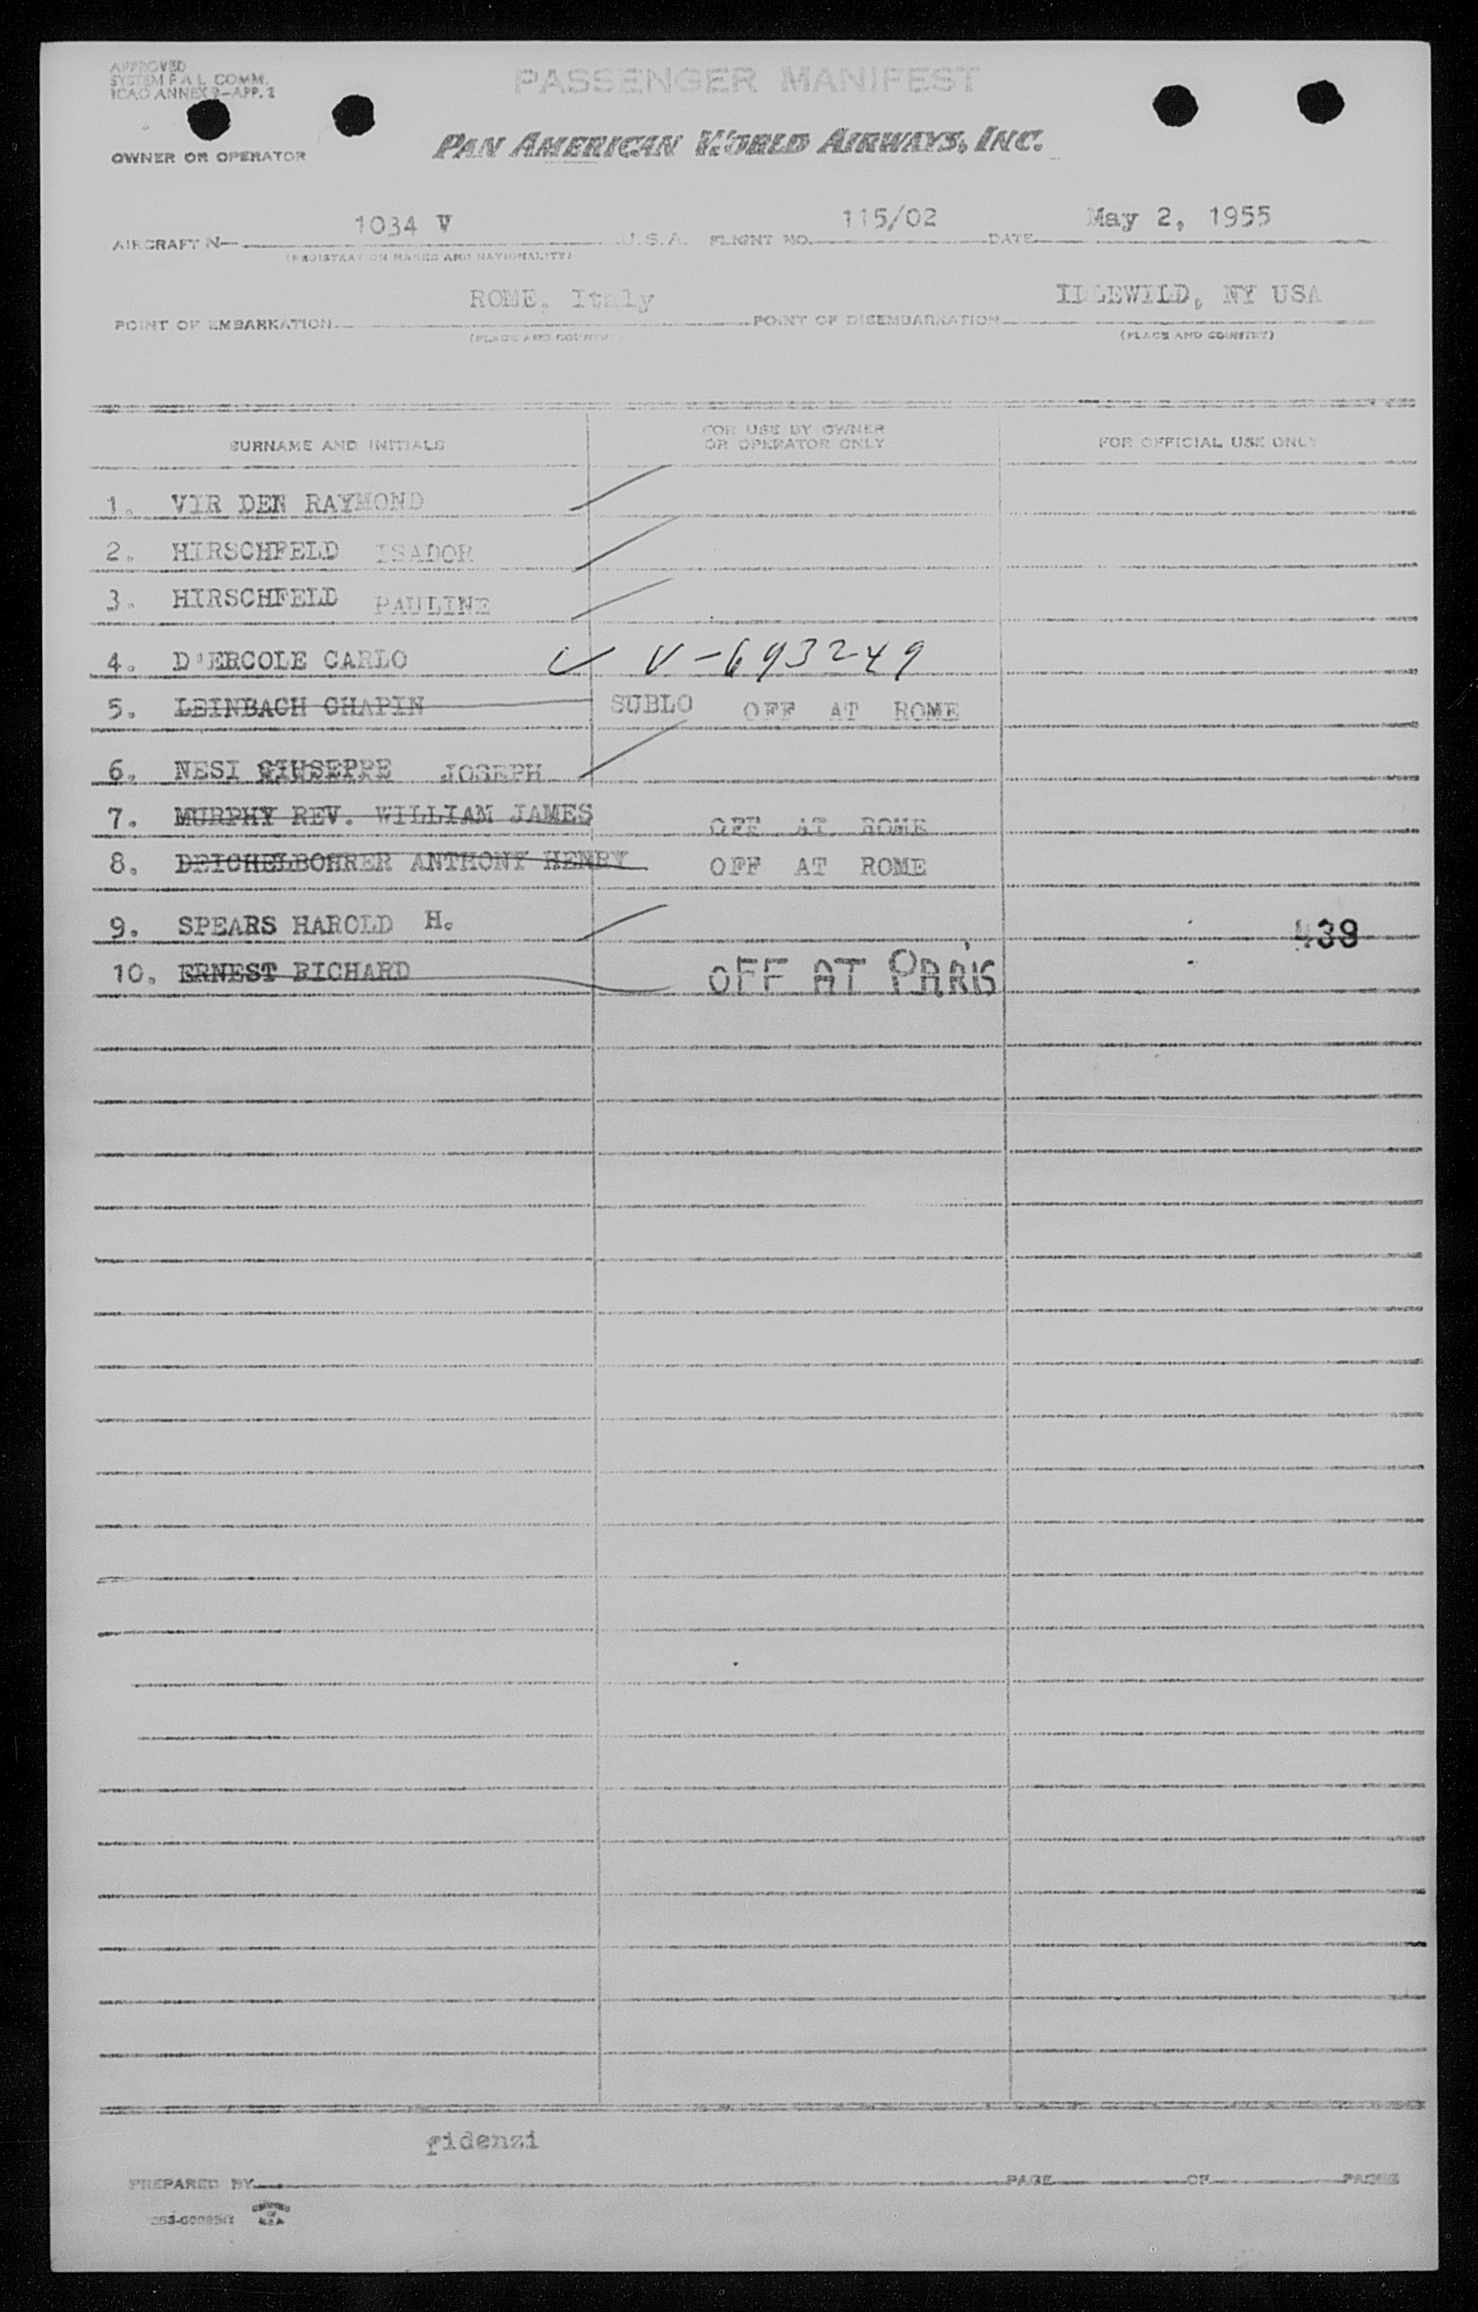 APPROVED
SYSTEM F A L COMM.
ICAO ANNEX 9-APP. 2
PASSENGER MANIFEST
OWNER OR OPERATOR
PAN AMERICAN WORLD AIRWAYS, INC.
AIRCRAFT N- 1034 V U.S.A. FLIGHT NO. 115/02 DATE May 2, 1955
(REGISTRATION MARKS AND NATIONALITY)
POINT OF EMBARKATION ROME, Italy POINT OF DISEMBARKATION IDLEWILD, NY USA
(PLACE AND COUNTRY) (PLACE AND COUNTRY)
SURNAME AND INITIALS FOR USE BY OWNER OR OPERATOR ONLY FOR OFFICIAL USE ONLY
1. VIR DEN RAYMOND
2. HIRSCHFELD ISADOR
3. HIRSCHFELD PAULINE
4. D'ERCOLE CARLO V-693249
5. LEINBACH CHAPIN SUBLO OFF AT ROME
6. NESI GIUSEPPE JOSEPH
7. MURPHY REV. WILLIAM JAMES OFF AT ROME
8. DEICHELBOHRER ANTHONY HENRY OFF AT ROME
9. SPEARS HAROLD H. 439
10. ERNEST RICHARD OFF AT PARIS
fidenzi
PREPARED BY PAGE OF PAGES